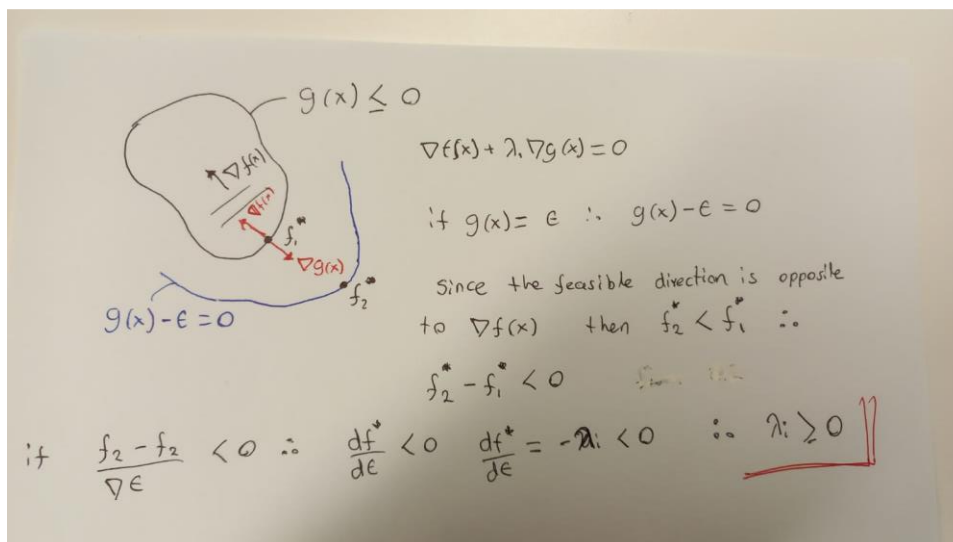 g(x) ≤ 0
∇f(x)
∇f(x)
f₁*
∇g(x)
f₂*
g(x)-ϵ=0
∇f(x) + λᵢ ∇g(x) = 0
if g(x) = ϵ ∴ g(x)-ϵ = 0
Since the feasible direction is opposite
to ∇f(x) then f₂* < f₁* ∴
f₂* - f₁* < 0
if (f₂ - f₂)/∇ϵ < 0 ∴ df*/dϵ < 0 df*/dϵ = -λᵢ < 0 ∴ λᵢ ≥ 0